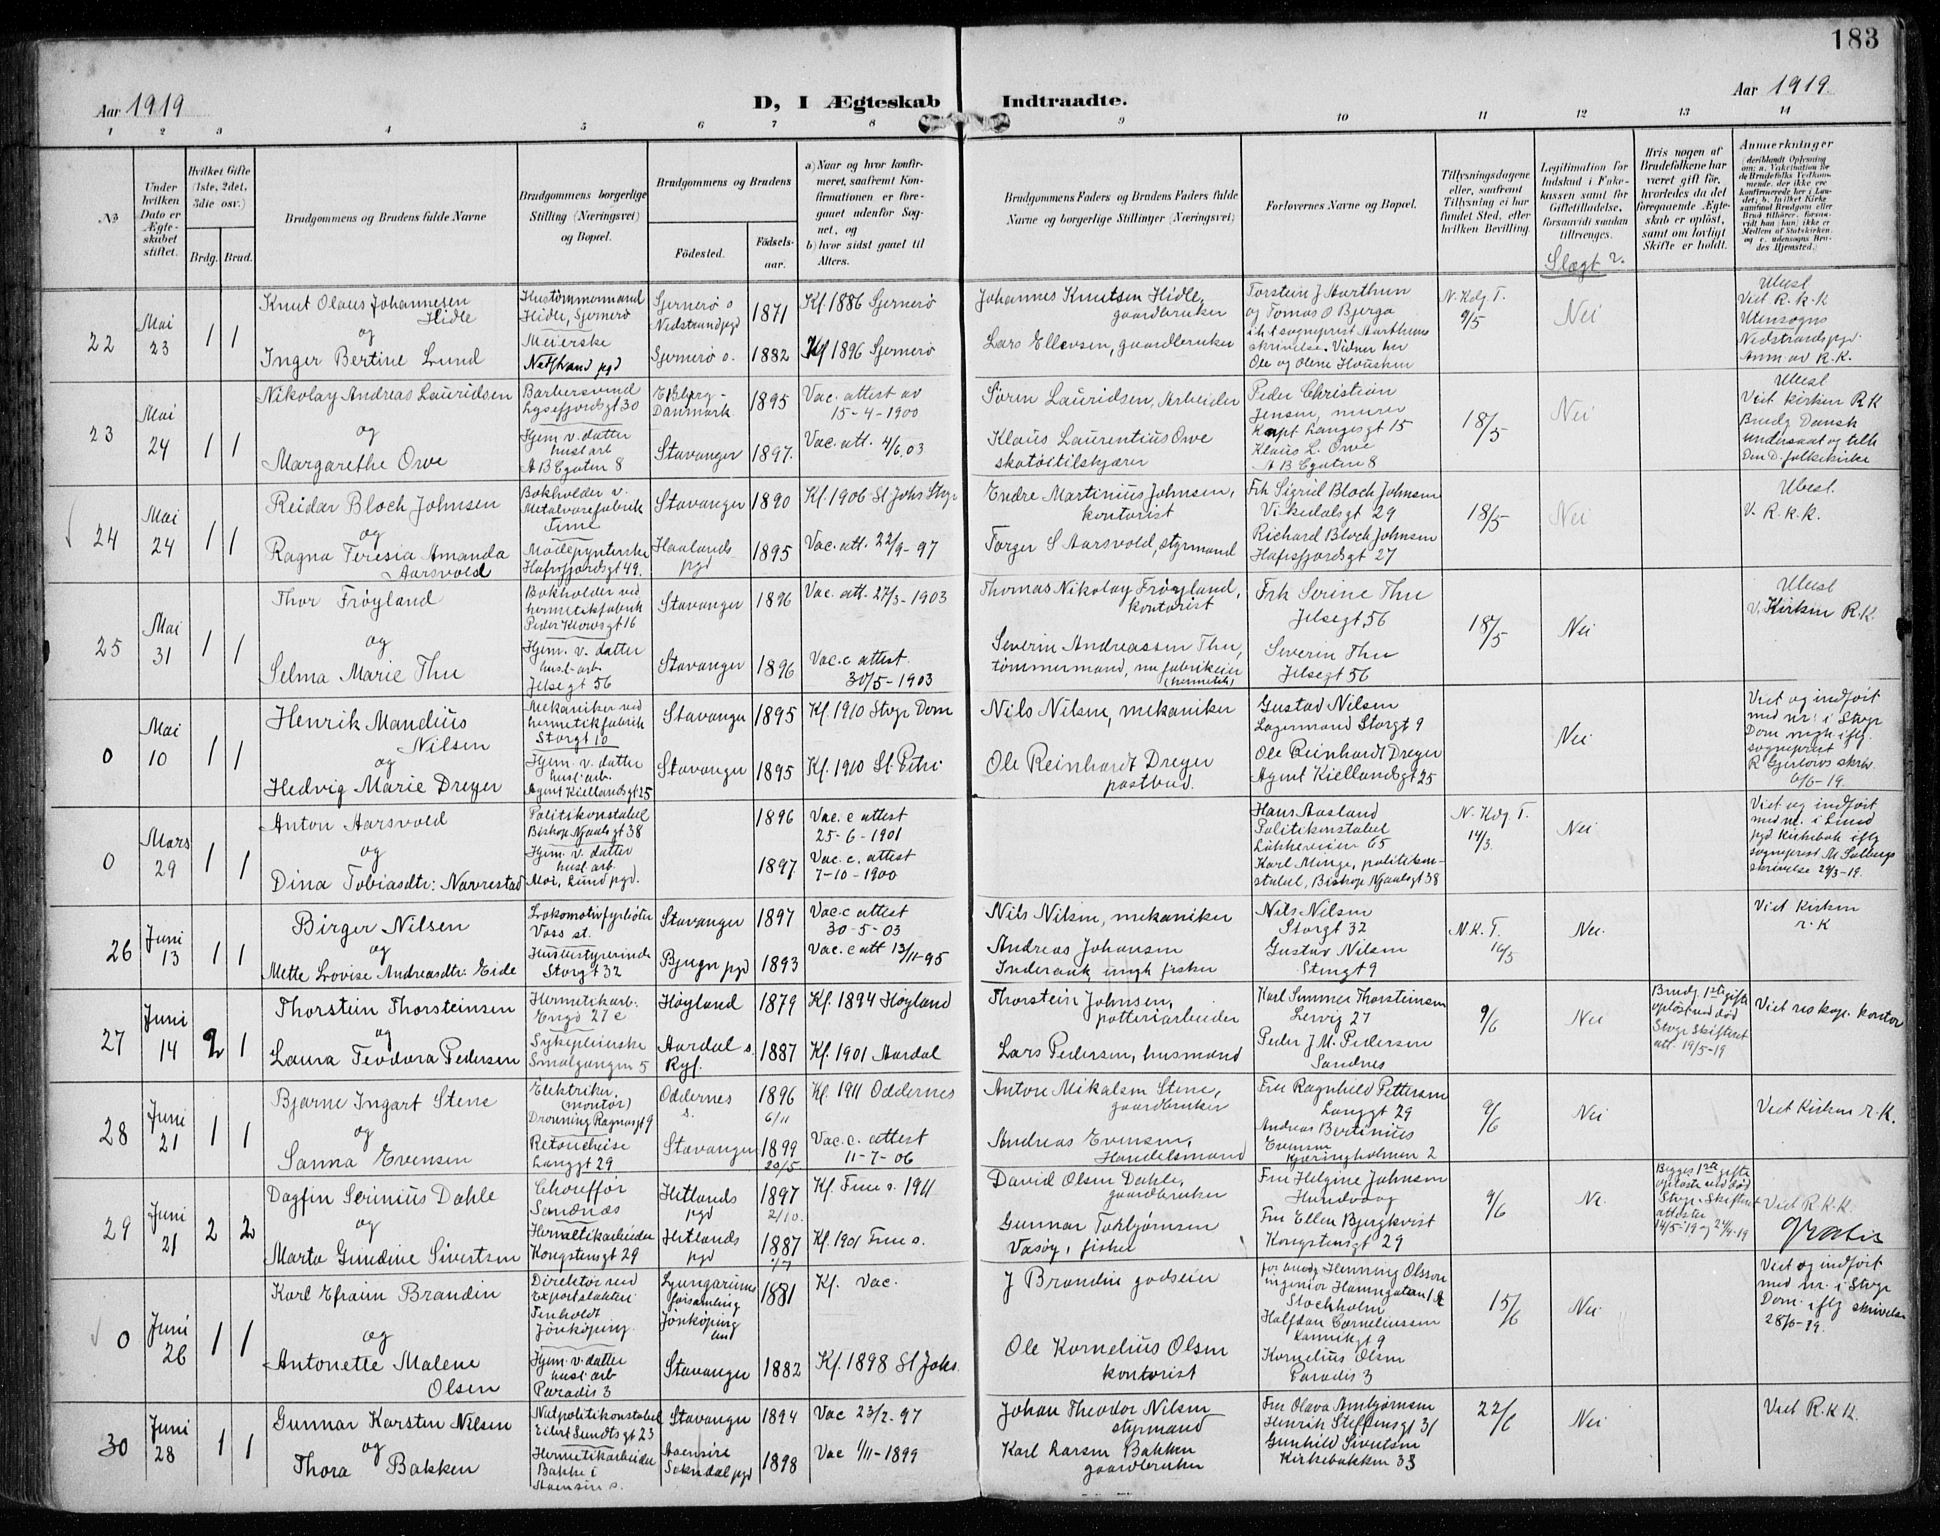 183
Aar 1919
D, I Ægteskab Indtraadte.
Aar 1919
1 2 3 4 5 6 7 8 9 10 11 12 13 14
No
Under hvilken Dato er Ægteskabet stiftet.
Hvilket Gifte (1ste, 2det, 3die osv.)
Brdg. Brud.
Brudgommens og Brudens fulde Navne
Brudgommens borgerlige Stilling (Næringsvei) og Bopæl.
Brudgommens og Brudens
Födested.
Födselsaar.
a) Naar og hvor konfirmeret, saafremt Konfirmationen er foregaaet udenfor Sognet, og
b) hvor sidst gaaet til Alters.
Brudgommens Faders og Brudens Faders fulde Navne og borgerlige Stillinger (Næringsvei)
Forlovernes Navne og Bopæl.
Tillysningsdagene eller, saafremt Tillysning ei har fundet Sted, efter hvilken Bevilling.
Legitimation for Indskud i Enkekassen samt for Giftetilladelse, forsaavidt saadan tiltrænges.
Slægt?
Hvis nogen af Brudefolkene har været gift för, hvorledes da det foregaaende Ægteskab er oplöst, samt om lovligt Skifte er holdt.
Anmerkninger
22 Mai 23 1 1
Knut Olaus Johannesen Hidle
og
Inger Bertine Lund
Hustømmermand
Hidle, Sjernerø
Meierske
Nedstrand pgd
Sjernerø s
Nedstrand pgd 1871
Sjernerø s. 1882
Kf 1886 Sjernerø
Kf 1896 Sjernerø
Johannes Knutsen Hidle, gaardbruker
Lars Ellevsen, gaardbruker
Torstein J Aarthun
og Tomas O Bjerga
i h t sogneprest Aarthuns
skrivelse. Vidner her
Ole og Olene Housken
N. Kdg T.
9/5
Nei
Ubesl
Viet R. k. K
Utensogns
Nedstrands pgd.
Anm av R. K.
23 Mai 24 1 1
Nikolay Andreas Lauridsen
og
Margarethe Owe
Barbersvend
Lysefjordsgt 30
Hjem v. datter
husl arb
A B Egaten 8
Esbjerg - Danmark 1895
Stavanger 1897.
Vac. attest av
15-4-1900
Vac. att. 4/6.03
Søren Lauridsen, Arbeider
Klaus Laurentius Owe
skotøitilskjærer
Peder Christian
Jensen, murer
Kapt Langesgt 15
Klaus L. Owe
A B Egaten 8
18/5
Nei
Ubesl
Viet kirken RK
Brudg Dansk
undersaat og tilh
Den D. folkekirke
24 Mai 24 1 1
Reidar Bloch Johnsen
og
Ragna Teresia Amanda Aarsvold
Bokholder v.
Metalvarefabrik
Time
Modepynterske
Hafrsfjordsgt 49.
Stavanger 1890
Haalands pgd 1895
Kf. 1906 St Johs Stvgr
Vac. att. 22/9-97
Endre Martinius Johnsen, kontorist
Torger S Aarsvold, styrmand
Frk Sigrid Bloch Johnsen
Vikedalsgt 29
Richard Bloch Johnsen
Hafrsfjordsgt 27
18/5
Nei
Ubesl.
V. R. k. K.
25 Mai 31 1 1
Thor Frøyland
og
Selma Marie Thu
Bokholder ved
hermetikfabrik
Peder Klowsgt 16
Hjem. v. datter
husl. arb.
Jelsegt 56
Stavanger 1896
Stavanger 1896
Vac. att. 27/3-1903
Vac. c attest.
30/5-1903
Thomas Nikolay Frøyland, kontorist
Severin Andreassen Thu,
tømmermand, nu fabrikeier
(hermetik)
Frk Serine Thu
Jelsegt 56
Severin Thu
Jelsegt 56
18/5
Nei
Ubesl
V. Kirken R.K.
0 Mai 10 1 1
Henrik Mandius Nilsen
og
Hedvig Marie Dreyer
Mekaniker ved
hermetikfabrik
Storgt 10
Hjem. v. datter
husl. arb.
Agent Kiellandsgt 25
Stavanger 1895
Stavanger 1895
Kf. 1910 Stvgr Dom
Kf. 1910 St. Petri
Nils Nilsen, mekaniker
Ole Reinhardt Dreyer
postbud.
Gustav Nilsen
Lagermand Storgt 9
Ole Reinhardt Dreyer
Agent Kiellandsgt 25
Nei
Viet og indført
med nr. i Stvgr
Dom mgh iflg.
sogneprest
R Gjerløws skriv.
6/6-19.
0 Mars 29 1 1
Anton Aarsvold
og
Dina Tobiasdtr: Navrestad
Politikonstabel
Bishop Njaalsgt 38
Hjem. v. datter
husl arb.
Moi, Lund pgd.
1896
1897
Vac. c attest
25-6-1901
Vac. c. attest
7-10-1900
Hans Aasland
Politikonstabel
Løkkeveien 65
Karl Minge, politikonstabel, Bishop Njaalsgt 38
N. Kdg T.
14/3.
Nei
Viet og indført
med nr. i Lund
pgd Kirkebok iflg
sogneprest M. Solbergs
skrivelse 29/3-19.
26 Juni 13 1 1
Birger Nilsen
og
Mette Lovise Andreasdtr: Eide
Lokomotivfyrbøter
Voss st.
Husbestyrerinde
Storgt 32
Stavanger 1897
Bjugn pgd 1893
Vac. c attest
30-5-03
Vac. c att 13/11-95
Nils Nilsen, mekaniker
Andreas Johansen
Inderauk, ungk fisker
Nils Nilsen
Storgt 32
Gustav Nilsen
Storgt 9
N. K. T.
16/5
Nei
Viet Kirken
r. K
27 Juni 14 2 1
Thorstein Thorsteinsen
og
Laura Teodora Pedersen
Hermetikarb.
Engg 27 c
Sykepleierske
Smalgangen 5
Høyland 1879
Aardal s. Ryf. 1887
Kf. 1894 Høyland
Kf. 1901 Aardal
Thorstein Johnsen,
potteriarbeider
Lars Pedersen, husmand
Karl Sømmer Thorsteinsen
Lervig 27
Peder J. M. Pedersen
Sandnes
9/6
Nei
Brudg 1ste gifte
opløst ved død
Stvgr Skifteret
att. 19/5-19
Viet res kap. kontor
28 Juni 21 1 1
Bjarne Ingart Stene
og
Sanna Evensen
Elektriker,
(montør)
Dronning Ragnasgt 9
Retoucheise
Langgt 29
Oddernes s. 1896 6/11
Stavanger 1899 20/5
Kf. 1911 Oddernes
Vac. c. attest
11-7-06
Antore Mikalsen Stene, gaardbruker
Andreas Evensen, Handelsmand
Fru Ragnhild Pettersen
Langgt 29
Andreas Bertinius
Evensen
Kjæringholmen 2
9/6
Nei
Viet Kirken r. K.
29 Juni 21 2 2
Dagfin Serinius Dahle
og
Marta Gundine Sivertsen
Chouffør
Sandnæs
Hermetikarbeider
Kongstensgt 29
Hetlands pgd 1897 2/10.
Hetlands pgd 1887
Kf. Time s. 1911
Kf. 1901 Time s.
David Olsen Dahle, gaardbruker
Gunnar Torbjørnsen
Vasøy, fisker
Fru Helgine Johnsen
Hundvaag
Fru Ellen Bjergkvist
Kongstensgt 29
9/6
Ne.
Begges 1ste gifte
opløst ved død
Stvgr. Skifteret
attester
14/5-19 og 24/4-19
Viet R. K. K.
Gratis
0 Juni 26 1 1
Karl Efraim Brandin
og
Antonette Malene Olsen
Direktør ved
Exportslakteri
Tenholdt
Jönköping.
Hjem. v. datter
husl arb
Paradis 3
Ljungarums
forsamling
Jönköping
län 1881
Stavanger 1882
Kf. Vac.
Kf. 1898 St Johs.
J Brandin godseier
Ole Kornelius Olsen
kontorist
Henning Olsson
ingeniør Hamngatan
Stockholm
Halfdan Corneliussen
Kannikgt 9
Kornelius Olsen
Paradis 3
15/6
Nei
Viet og indført
med nr. i Stvgr
Dom. iflg skrivelse
28/6-19.
30 Juni 28 1 1
Gunnar Karsten Nilsen
og
Thora Bakken
Natpolitikonstabel
Eilert Sundtsgt 23
Hermetikarbeider
Bakke i
Aaensire s.
Stavanger 1894
Aaensire
Sokndal pgd 1898
Vac 23/2-97
Vac 1/11-1899
Johan Theodor Nilsen
styrmand
Karl Larsen Bakken
gaardbruker
Fru Olava Arnbjørnsen
Henrik Steffensgt 31
Gunhild Sivertsen
Kirkebakken 33
22/6
Nei
Viet R. K K.